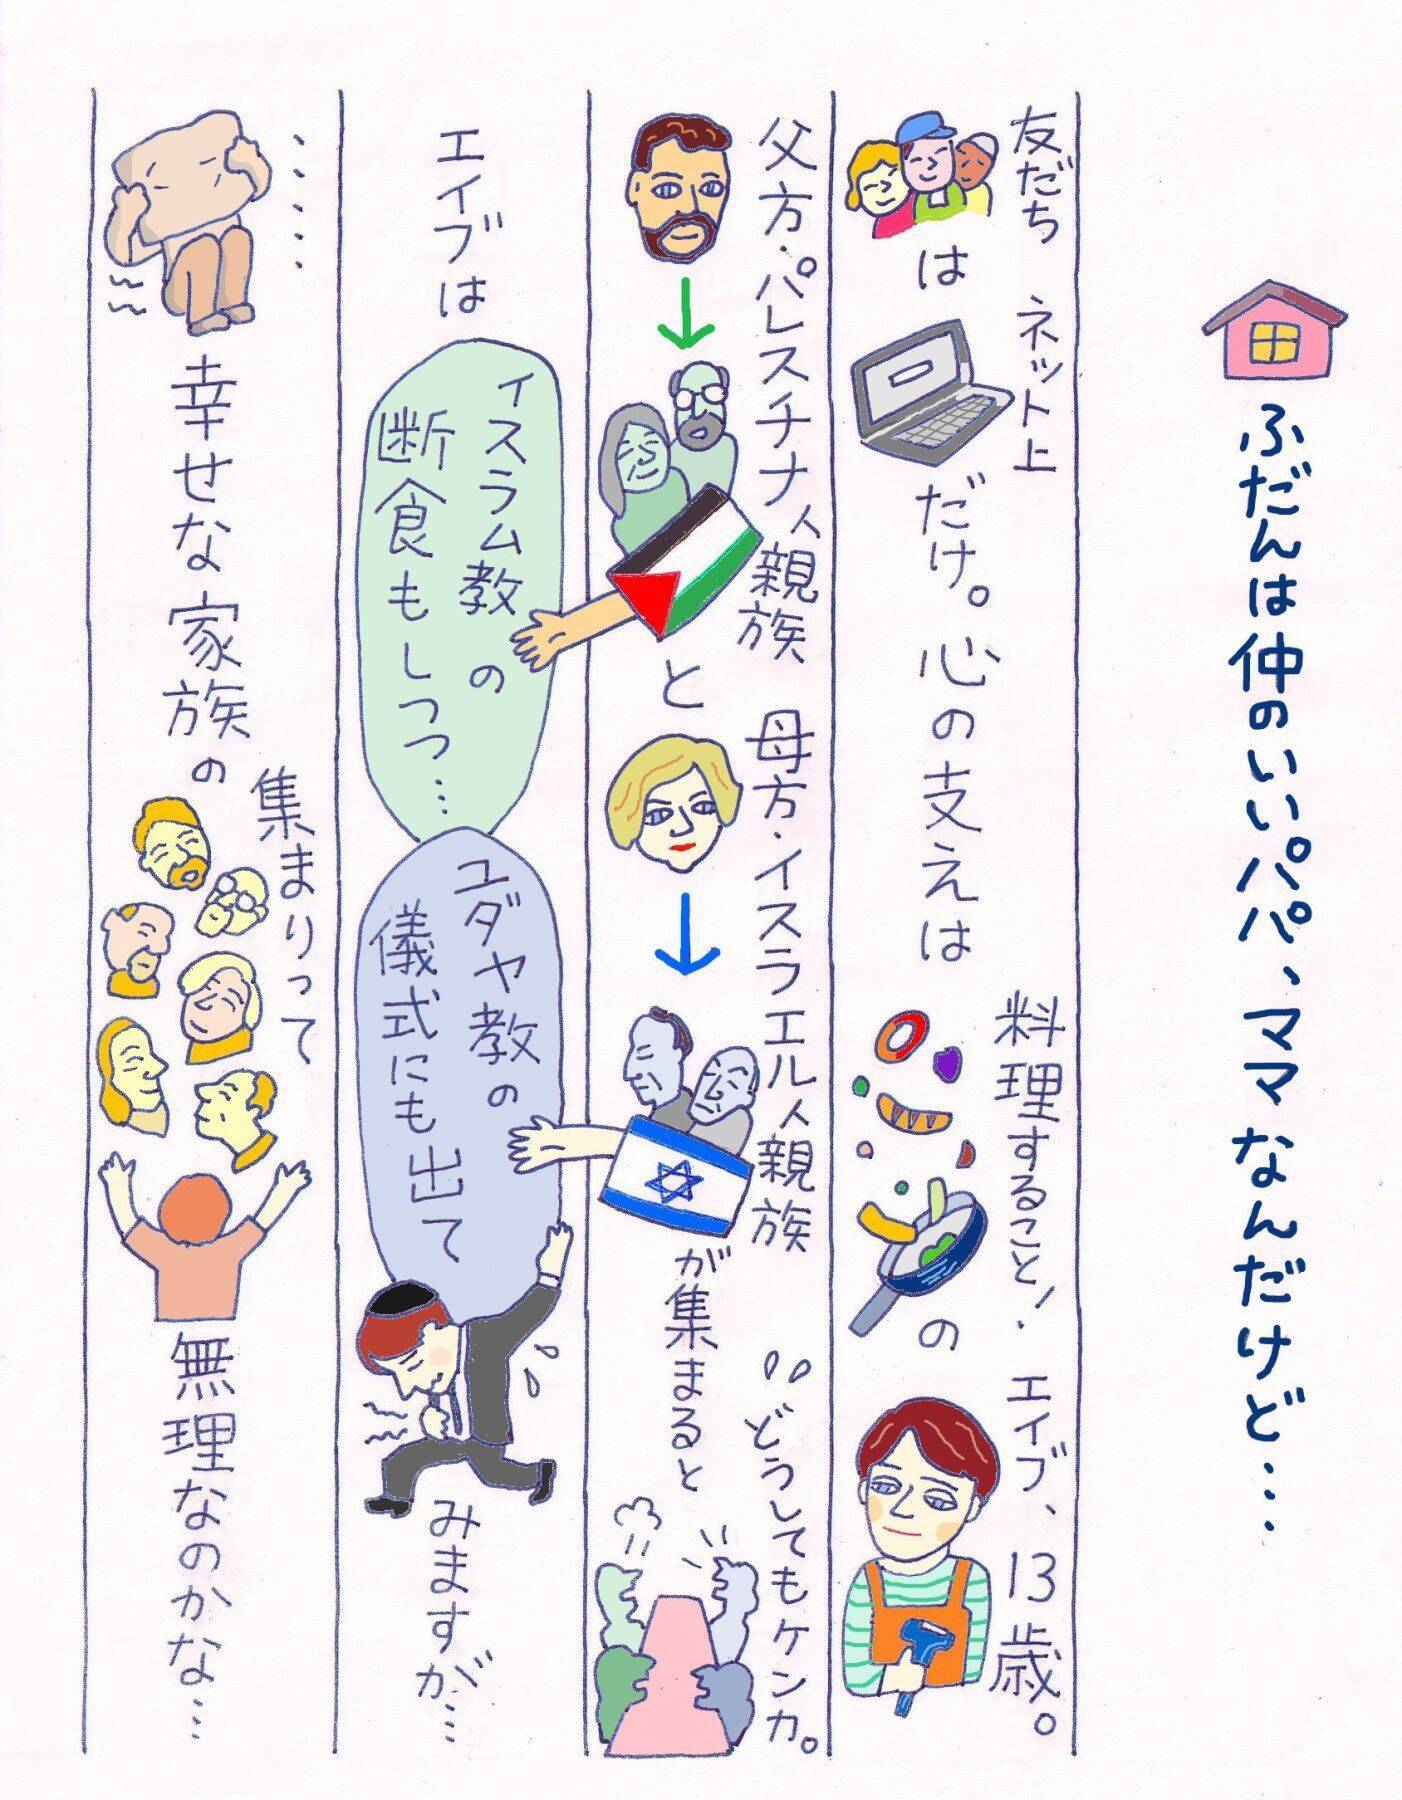 ふだんは仲のいいパパ、ママなんだけど…
友だちは ネット上だけ。心の支えは料理すること！のエイブ、13歳。
父方・パレスチナ人親族と母方・イスラエル人親族が集まるとどうしてもケンカ。
エイブは
イスラム教の
断食もしつつ…
ユダヤ教の
儀式にも出て
みますが…
……幸せな家族の集まりって無理なのかな…